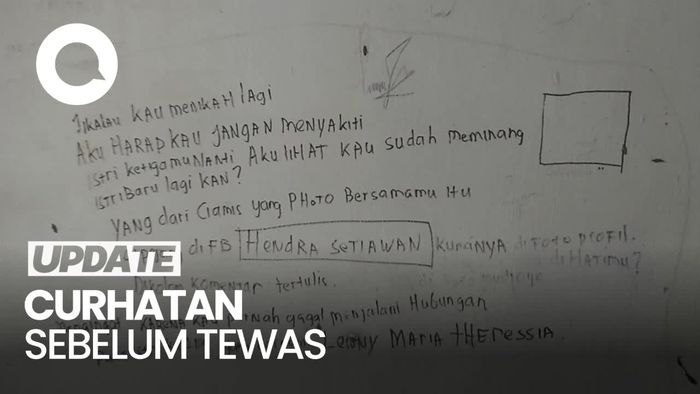 JIKALAU KAU MENIKAH lAgi
AKU HARAP KAU JANGAN MENYAKITI
iStri ketigamu NANTI AKU LIHAT KAU sudah meminang
iSTRi BARU lAgi KAN?
YANG dari CIAMIS yang PHOTO BERSAMAMU itu
di FB HENDRA SETIAWAN di FOTO PROFIL.
di HATIMU?
KOMENTAR tertulis.
KARENA KAU gagal menjalani HUBUNGAN
MARIA tHERESSIA.
UPDATE
CURHATAN
SEBELUM TEWAS